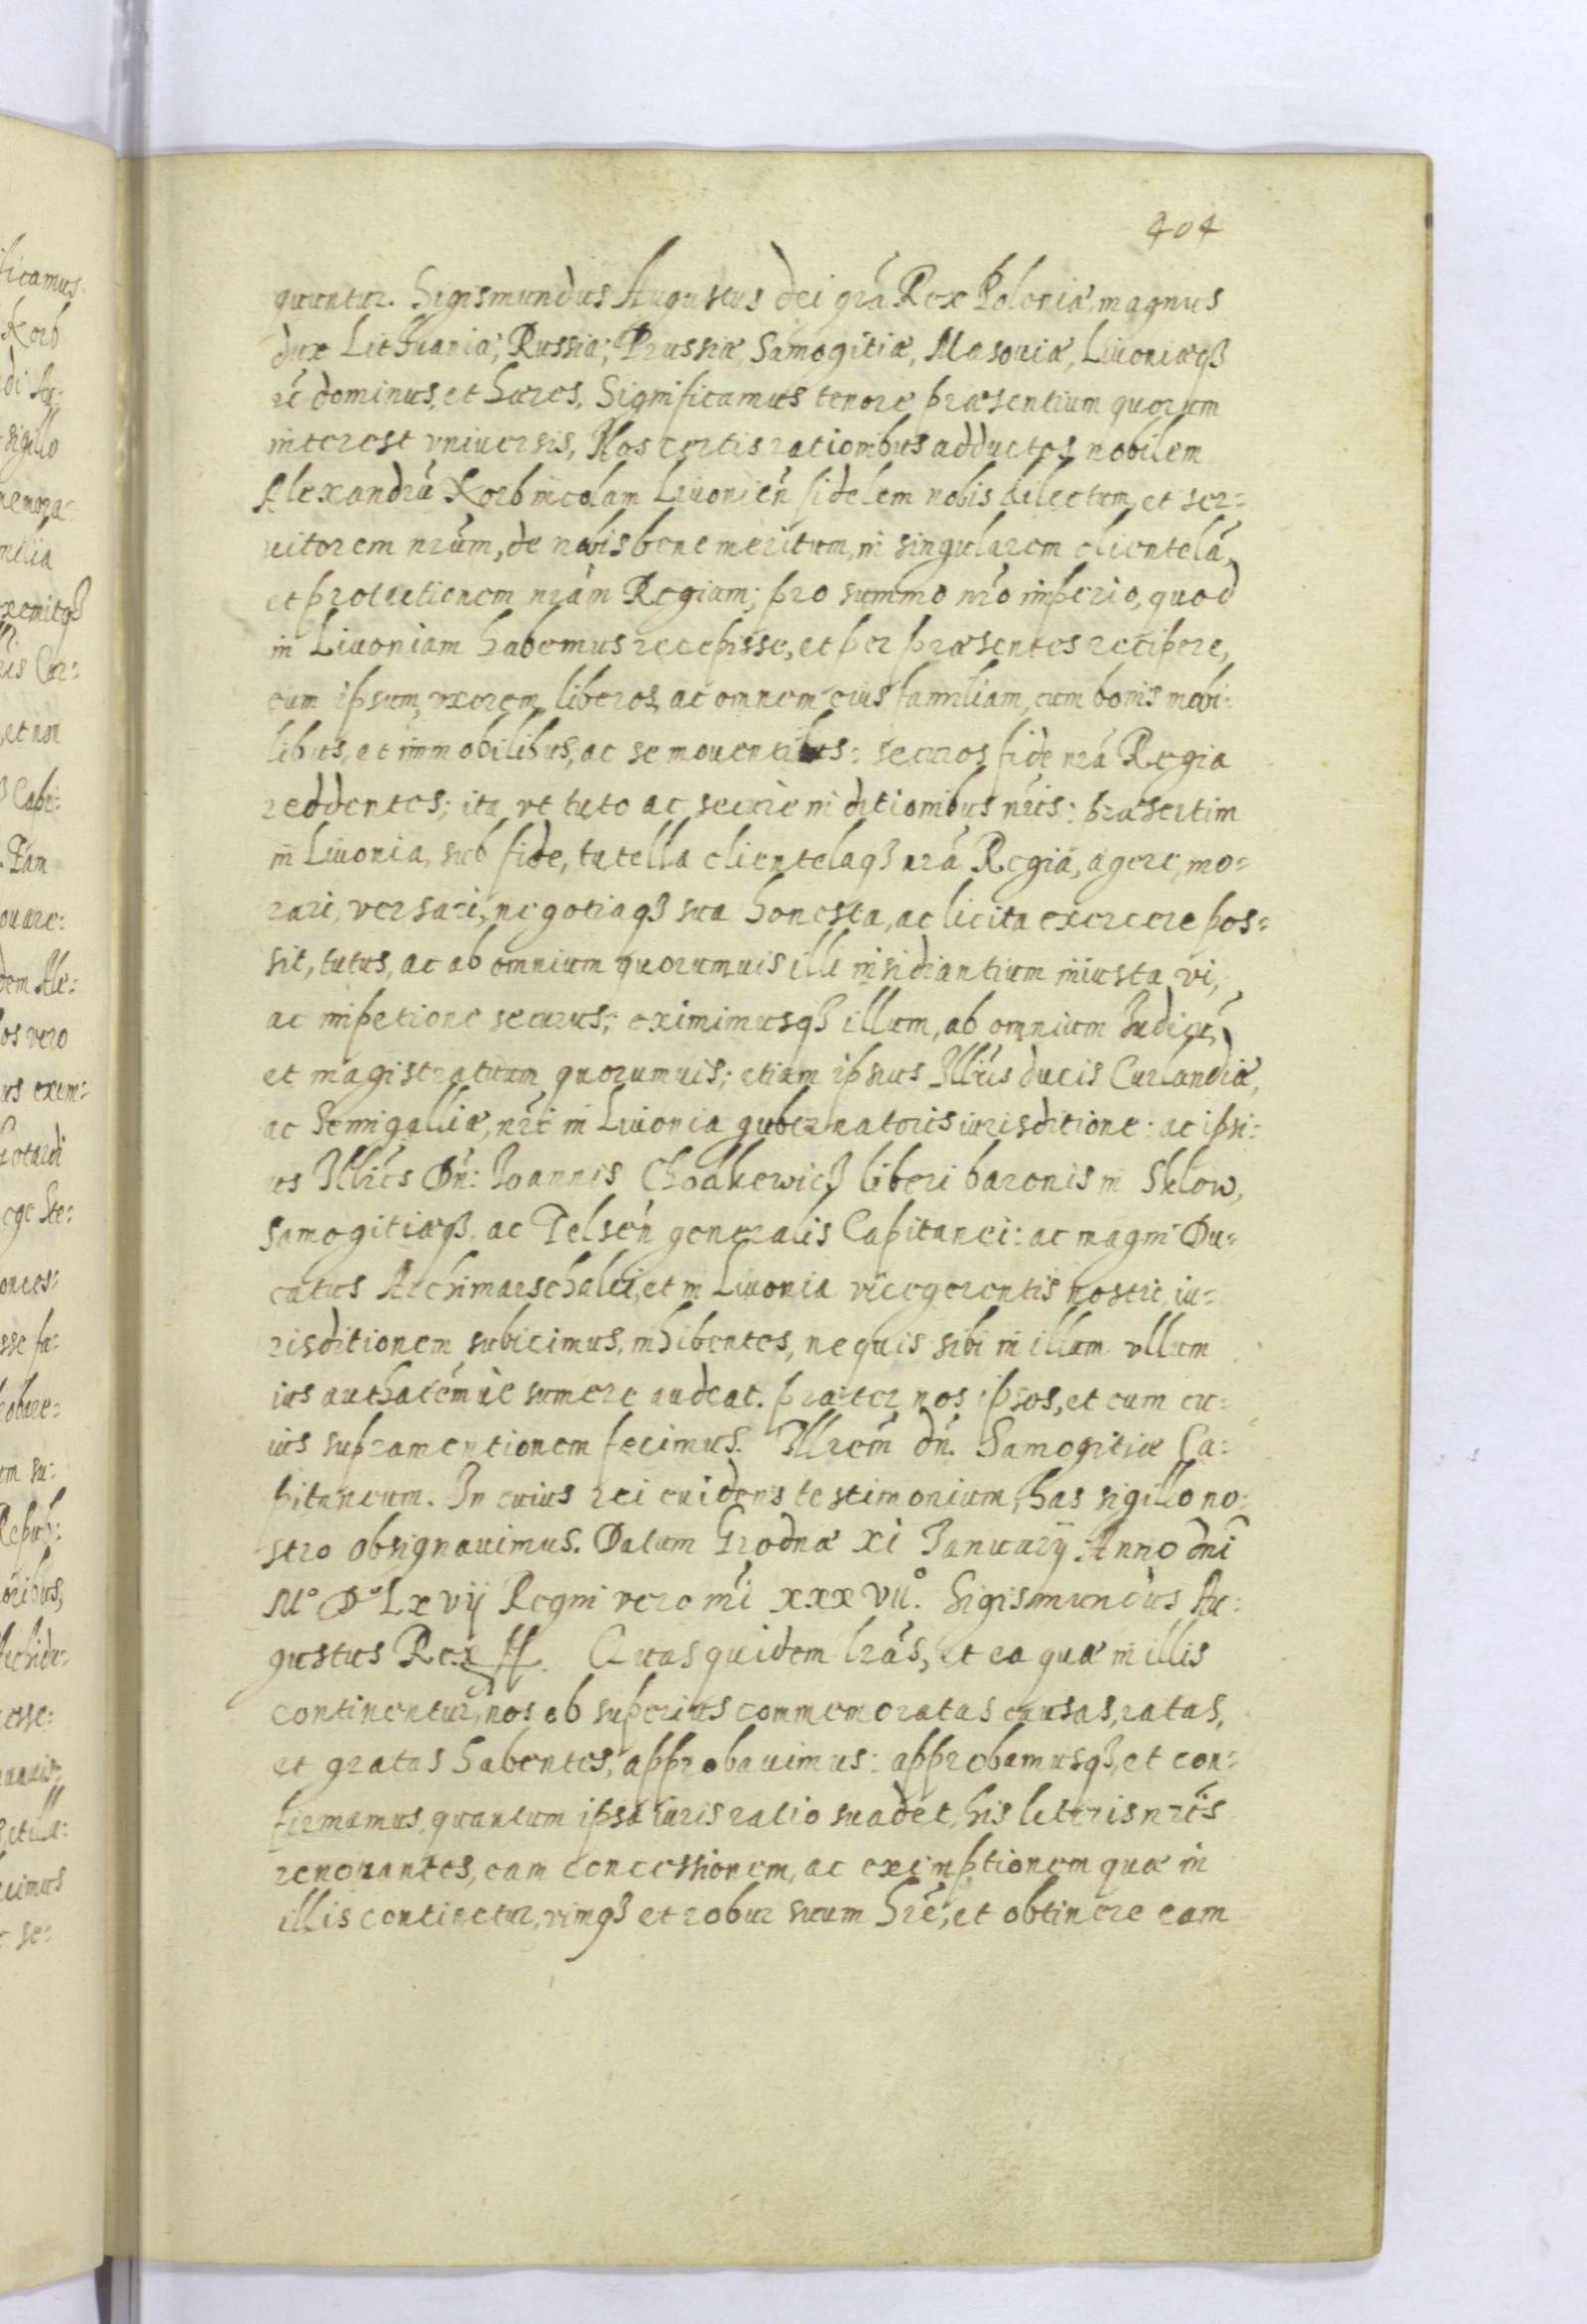 404
quuntur. Sigismundus Augustus dei grã Rex Poloniæ, magnus
dux Lithuaniæ, Russiæ, Prussiæ, Samogitiæ, Masouiæ, Liuoniæqꝫ
rẽ dominus, et hæres, Significamus tenore præsentium quorum
interest vniuersis, Nos certis rationibus adductos, nobilem
Alexandrũ Korb incolam Liuonieñ fidelem nobis dilectum, et ser=
uitorem nrũm, de nobis bene meritum, in singularem clientelã,
et protectionem nrãm Regiam; pro summo nrõ imperio, quod
in Liuoniam habemus recepisse, et per præsentes recipere,
eum ipsum, vxorem, liberos, ac omnem eius familiam, cum bonis mobi:
libus, et immobilibus, ac se mouentibus: securos fide nrã Regia
reddentes; ita vt tuto ac secure in ditionibus nris: præsertim
in Liuonia, sub fide, tutella clientelaqꝫ nrã Regiã, agere, mo=
rari, versari, negotiaqꝫ sua honesta, ac licita exercere pos=
sit, tutus, ac ab omnium quorumuis illi insidiantium iniusta vi,
ac impetione securus; eximimusqꝫ illum, ab omnium Iudicũ,
et magistratuum quorumuis; etiam ipsius Illris ducis Curlandiæ,
ac Semigalliæ, nri in Liuonia gubernatoris iurisditione: ac ipsi:
us Illris Dñ: Ioannis Chodkewicꝫ liberi baronis in Sklow,
Samogitiæqꝫ, ac Telseñ generalis Capitanei: ac magni Du=
catus Archimarschalci, et in Liuonia vicegerentis nostri, iu=
risditionem subicimus, inhibentes, ne quis sibi in illum vllum
ius authatẽmue sumere audeat. præter nos ipsos, et eum cu=
ius supra mentionem fecimus. Illrem dñ. Samogitiæ Ca:
pitaneum. In cuius rei euidens testimonium, has sigillo no:
stro obsignauimus. Datum Grodnæ xi Ianuarij Anno dni
Mº Dº Lx vij Regni vero nri xxx vijº. Sigismundus Au:
gustus Rex ss. Quas quidem lrãs, et ea quæ in illis
continentur, nos ob superius commemoratas causas, ratas,
et gratas habentes, approbauimus: approbamusqꝫ, et con=
firmamus, quantum ipsa iuris ratio suadet, his literis nris
renouantes, eam concessionem, ac exemptionem quæ in
illis continetur, vimqꝫ et robur suum hrẽ, et obtinere eam